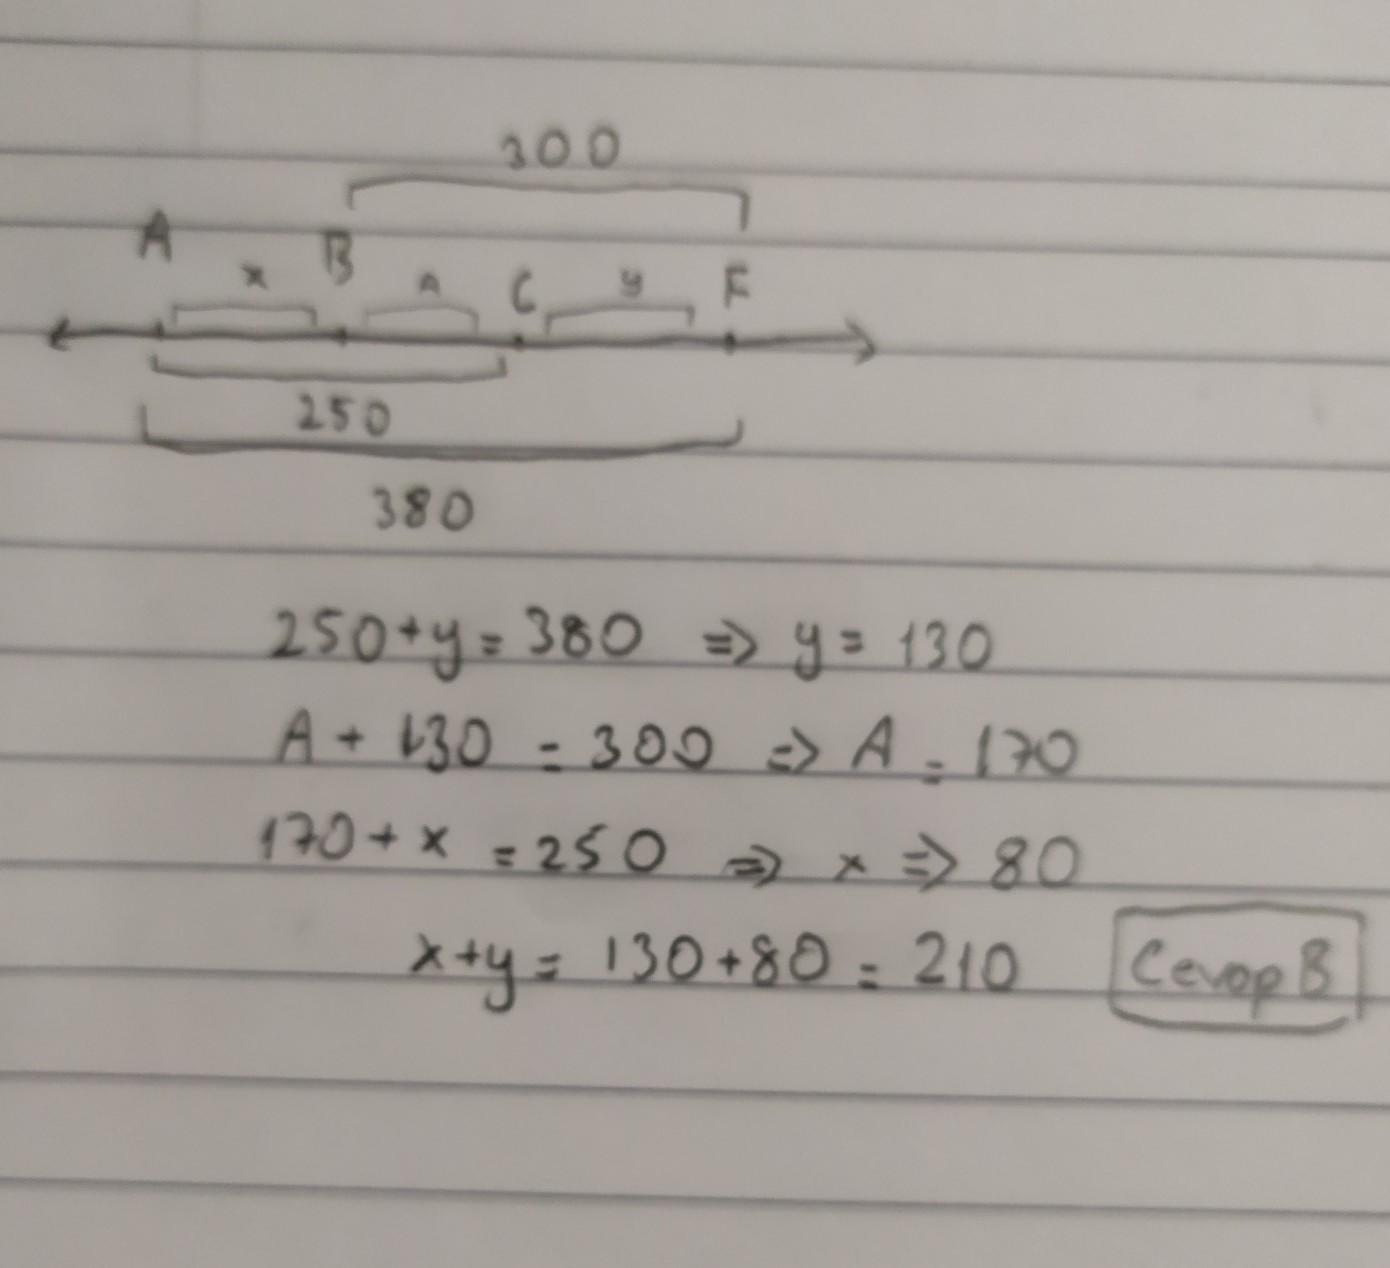 300
A x B A C y F
250
380
250+y=380 => y=130
A+130=300 => A=170
170+x=250 => x=>80
x+y=130+80=210 Cevap B